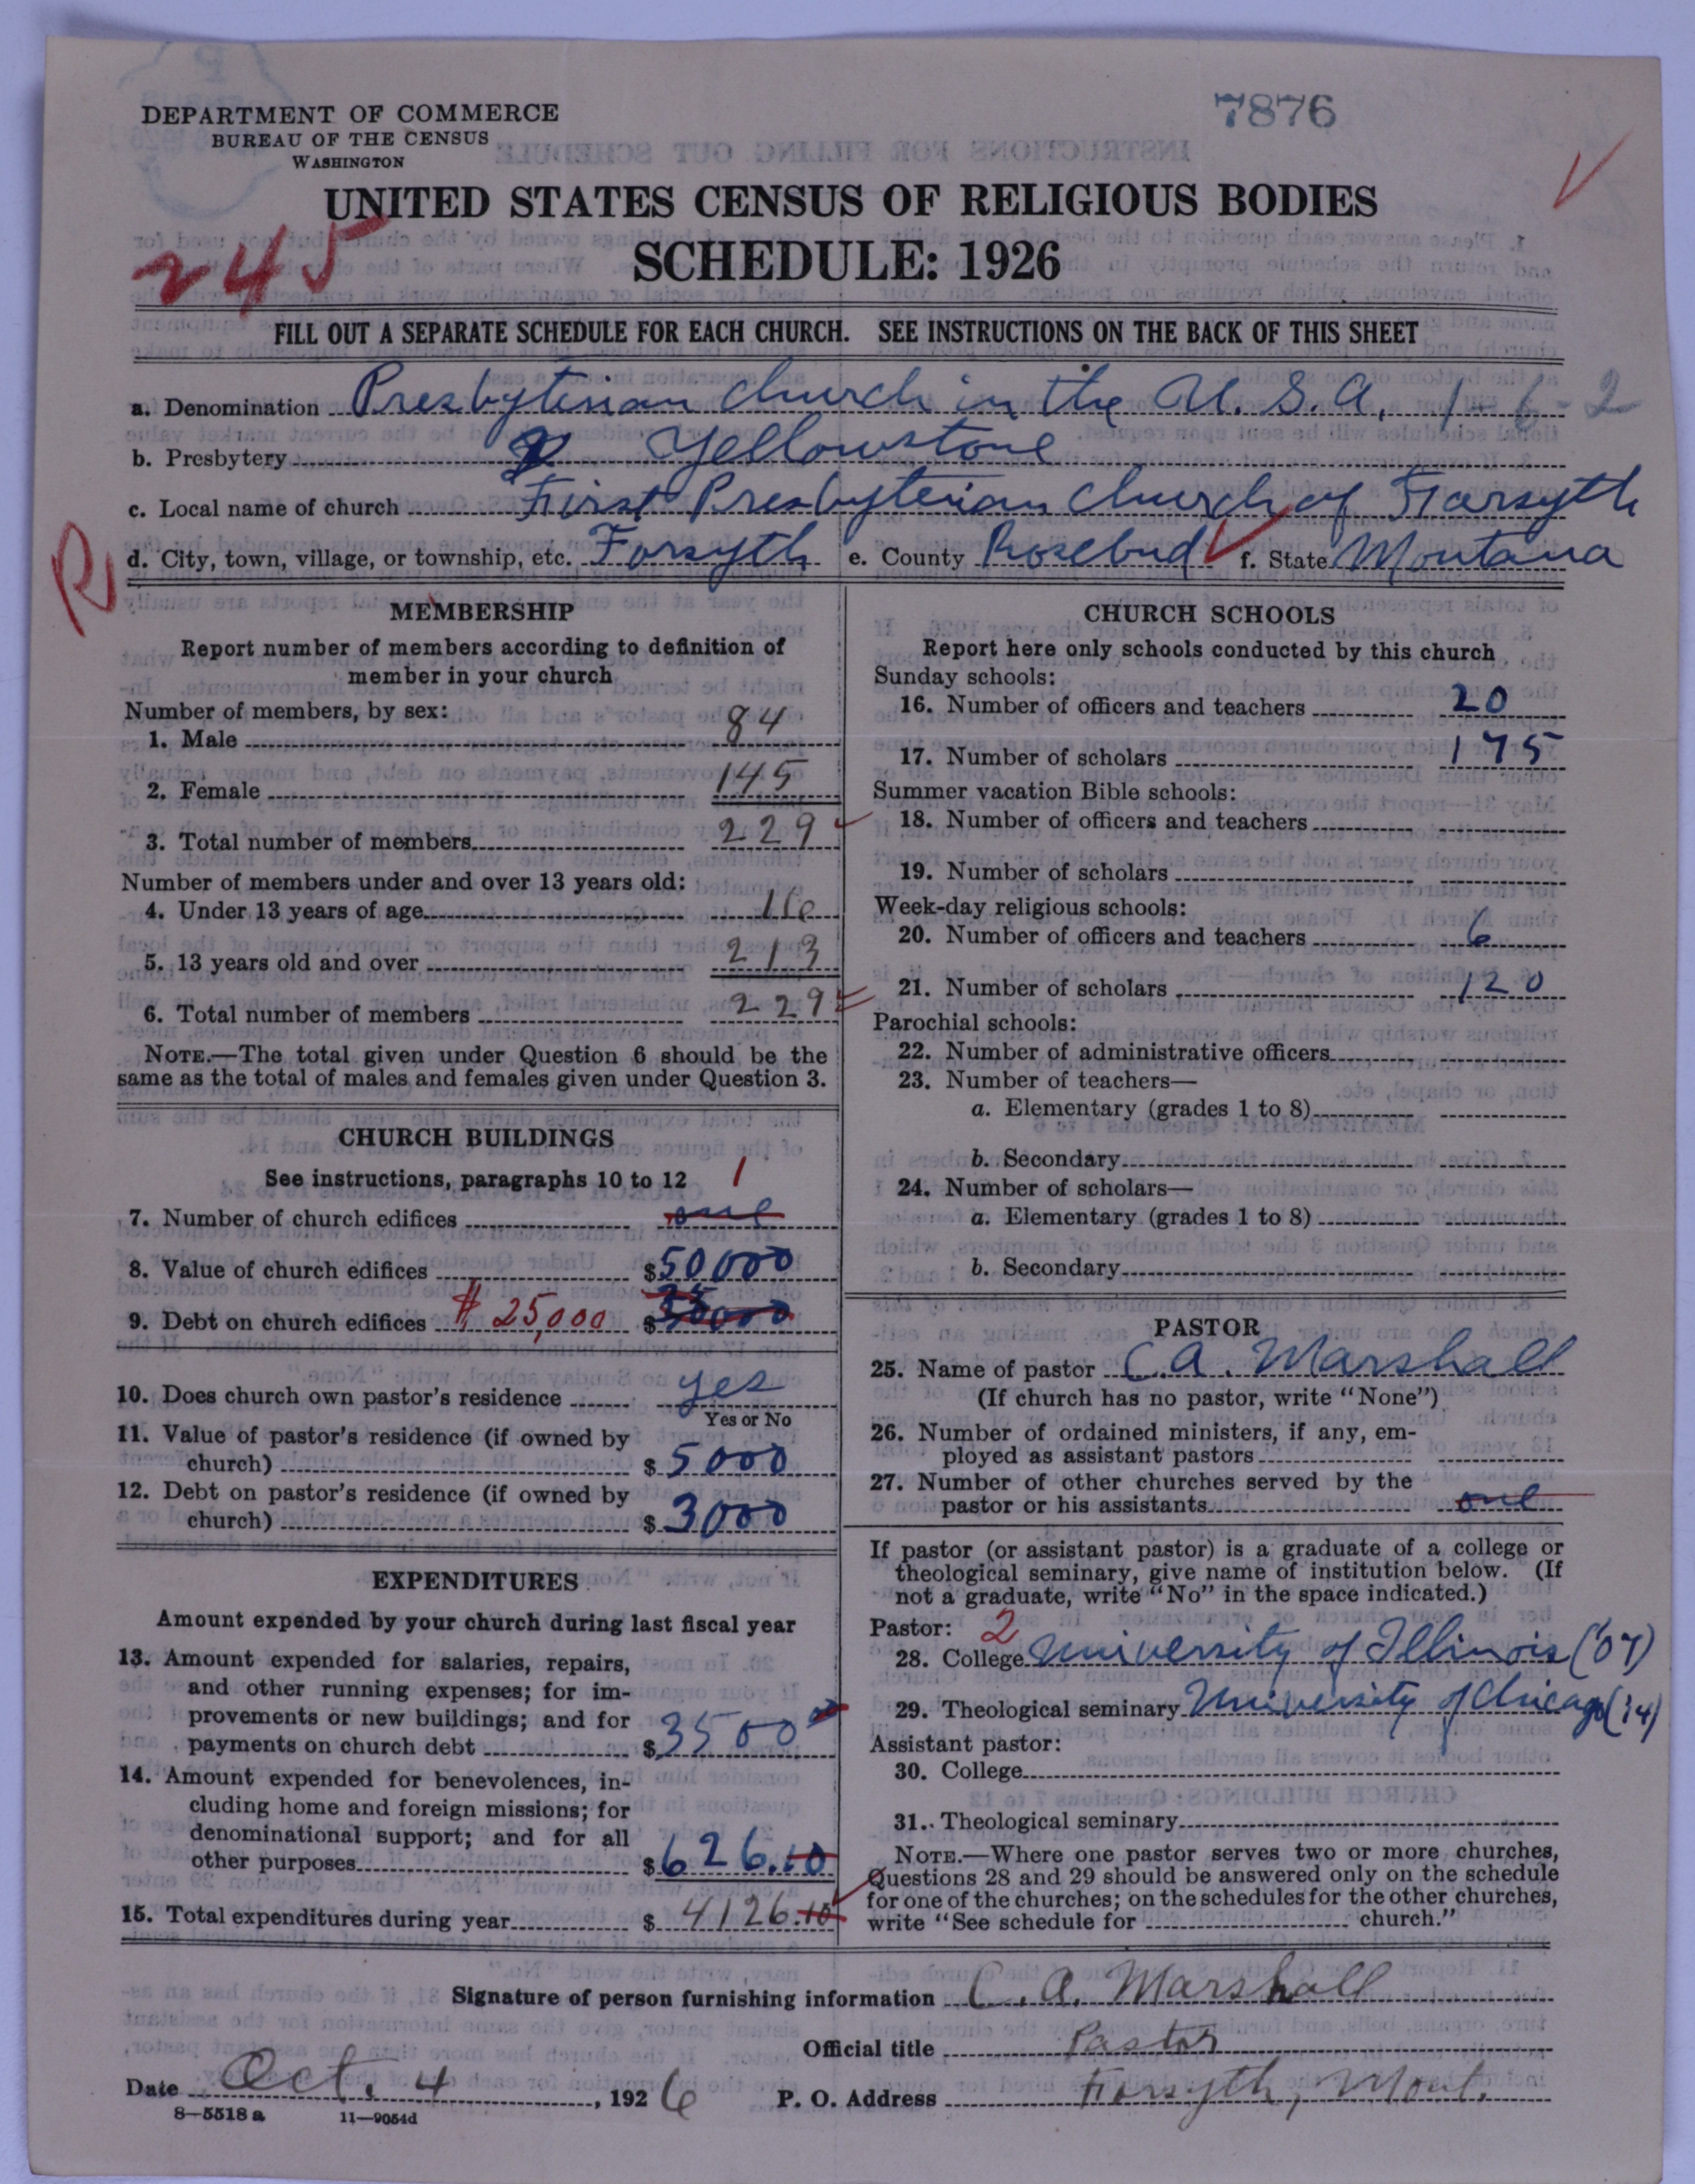 DEPARTMENT OF COMMERCE
BUREAU OF THE CENSUS
WASHINGTON
7876
UNITED STATES CENSUS OF RELIGIOUS BODIES
SCHEDULE: 1926
245
FILL OUT A SEPARATE SCHEDULE FOR EACH CHURCH. SEE INSTRUCTIONS ON THE BACK OF THIS SHEET
a. Denomination Presbyterian Church in the U.S.A. 1-6-2
b. Presbytery Yellowstone
c. Local name of church First Presbyterian Church of Forsyth
R
d. City, town, village, or township, etc. Forsyth e. County Rosebud f. State Montana
MEMBERSHIP
Report number of members according to definition of
member in your church
Number of members, by sex:
1. Male 84
2. Female 145
3. Total number of members 229
Number of members under and over 13 years old:
4. Under 13 years of age 16
5. 13 years old and over 213
6. Total number of members 229
NOTE.—The total given under Question 6 should be the
same as the total of males and females given under Question 3.
CHURCH BUILDINGS
See instructions, paragraphs 10 to 12 1
7. Number of church edifices one
8. Value of church edifices $50000
9. Debt on church edifices $25,000 $
10. Does church own pastor's residence yes
Yes or No
11. Value of pastor's residence (if owned by
church) $5000
12. Debt on pastor's residence (if owned by
church) $3000
EXPENDITURES
Amount expended by your church during last fiscal year
13. Amount expended for salaries, repairs,
and other running expenses; for im-
provements or new buildings; and for
payments on church debt $3500
14. Amount expended for benevolences, in-
cluding home and foreign missions; for
denominational support; and for all
other purposes $626.10
15. Total expenditures during year $4126.10
CHURCH SCHOOLS
Report here only schools conducted by this church
Sunday schools:
16. Number of officers and teachers 20
17. Number of scholars 175
Summer vacation Bible schools:
18. Number of officers and teachers
19. Number of scholars
Week-day religious schools:
20. Number of officers and teachers 6
21. Number of scholars 120
Parochial schools:
22. Number of administrative officers
23. Number of teachers—
a. Elementary (grades 1 to 8)
b. Secondary
24. Number of scholars—
a. Elementary (grades 1 to 8)
b. Secondary
PASTOR
25. Name of pastor C. A. Marshall
(If church has no pastor, write "None")
26. Number of ordained ministers, if any, em-
ployed as assistant pastors
27. Number of other churches served by the
pastor or his assistants one
If pastor (or assistant pastor) is a graduate of a college or
theological seminary, give name of institution below. (If
not a graduate, write "No" in the space indicated.)
Pastor: 2
28. College University of Illinois ('07)
29. Theological seminary University of Chicago ('14)
Assistant pastor:
30. College
31. Theological seminary
NOTE.—Where one pastor serves two or more churches,
Questions 28 and 29 should be answered only on the schedule
for one of the churches; on the schedules for the other churches,
write "See schedule for church."
Signature of person furnishing information C. A. Marshall
Official title Pastor
Date Oct. 4, 1926 P. O. Address Forsyth, Mont.
8—5518 a 11—9054d